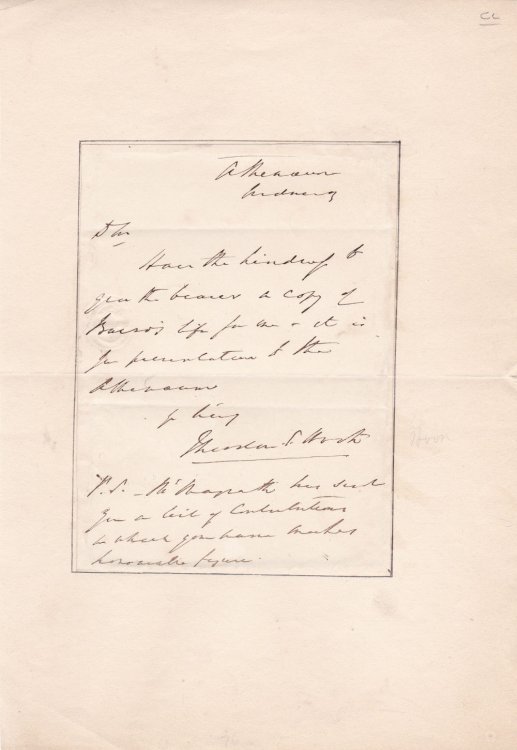 CL
Athenaeum
Wednesdy
D Sir
Have the kindness to
give the bearer a copy of
life for me & it is
for presentation to the
Athenaeum
Theodore E. Hook
Hook
P.S. — Mr Magrath has sent
you a list of Contributions
in which your name makes
honorable figure.